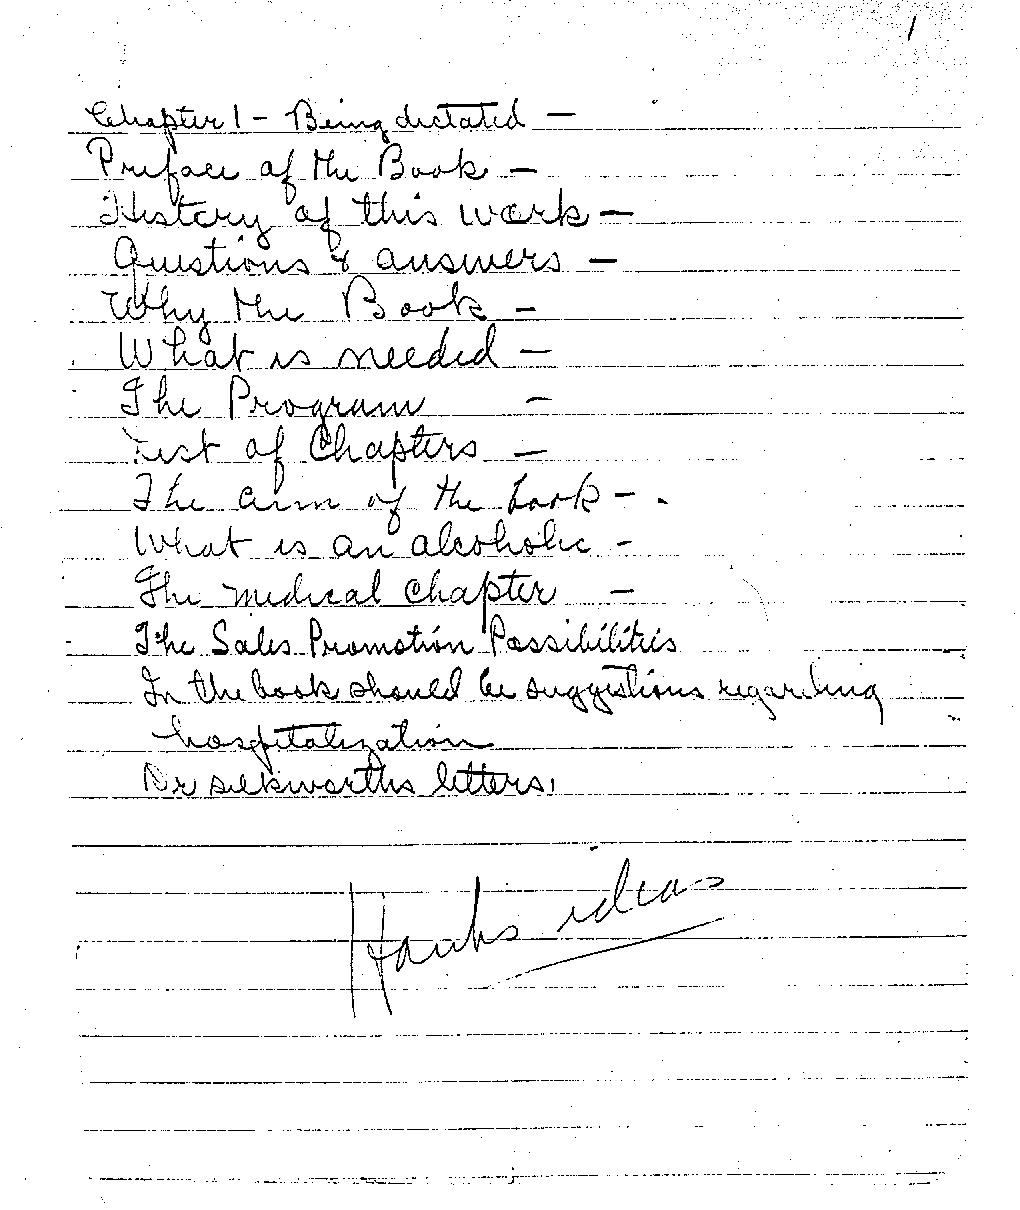 1
Chapter 1 - Being dictated -
Preface of the Book -
History of this work -
Questions & answers -
Why the Book -
What is needed -
The Program -
List of Chapters -
The aim of the book -
What is an alcoholic -
The medical chapter -
The Sales Promotion Possibilities
In the book should be suggestions regarding
hospitalization
Dr silkworths letters.
Hanks ideas